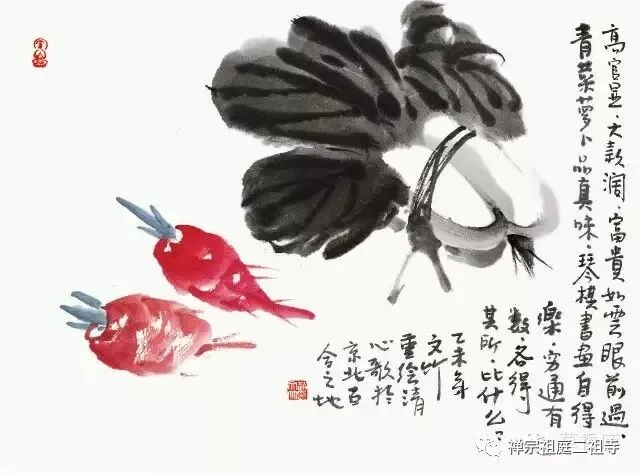 高官显·大款濶·富貴如雲眼前過。
青菜萝卜品真味·琴棋書畫自得
樂·穷通有
数·各得
其所·比什么？
乙未年
文竹
重绘清
心歌於
京北百
合之地
禅宗祖庭二祖寺